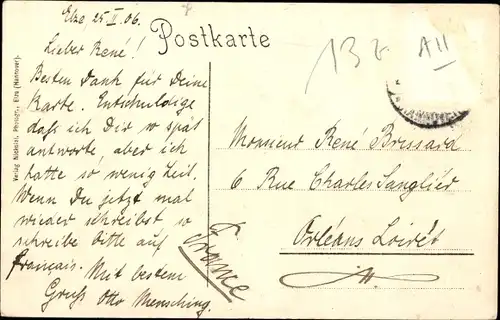 Elze, 25 II. 06.
Postkarte
Lieber René!
Besten Dank für Deine
Karte. Entschuldige
daß ich Dir so spät
antworte, aber ich
hatte so wenig Zeit.
Wenn Du jetzt mal
wieder schreibst so
schreibe bitte auf
français. Mit bestem
Gruß Otto Mensching.
13
A11
Monsieur René Brissard
6 Rue Charles Sanglier
Orléans Loiret
France
Photogr., Elze (Hannover).